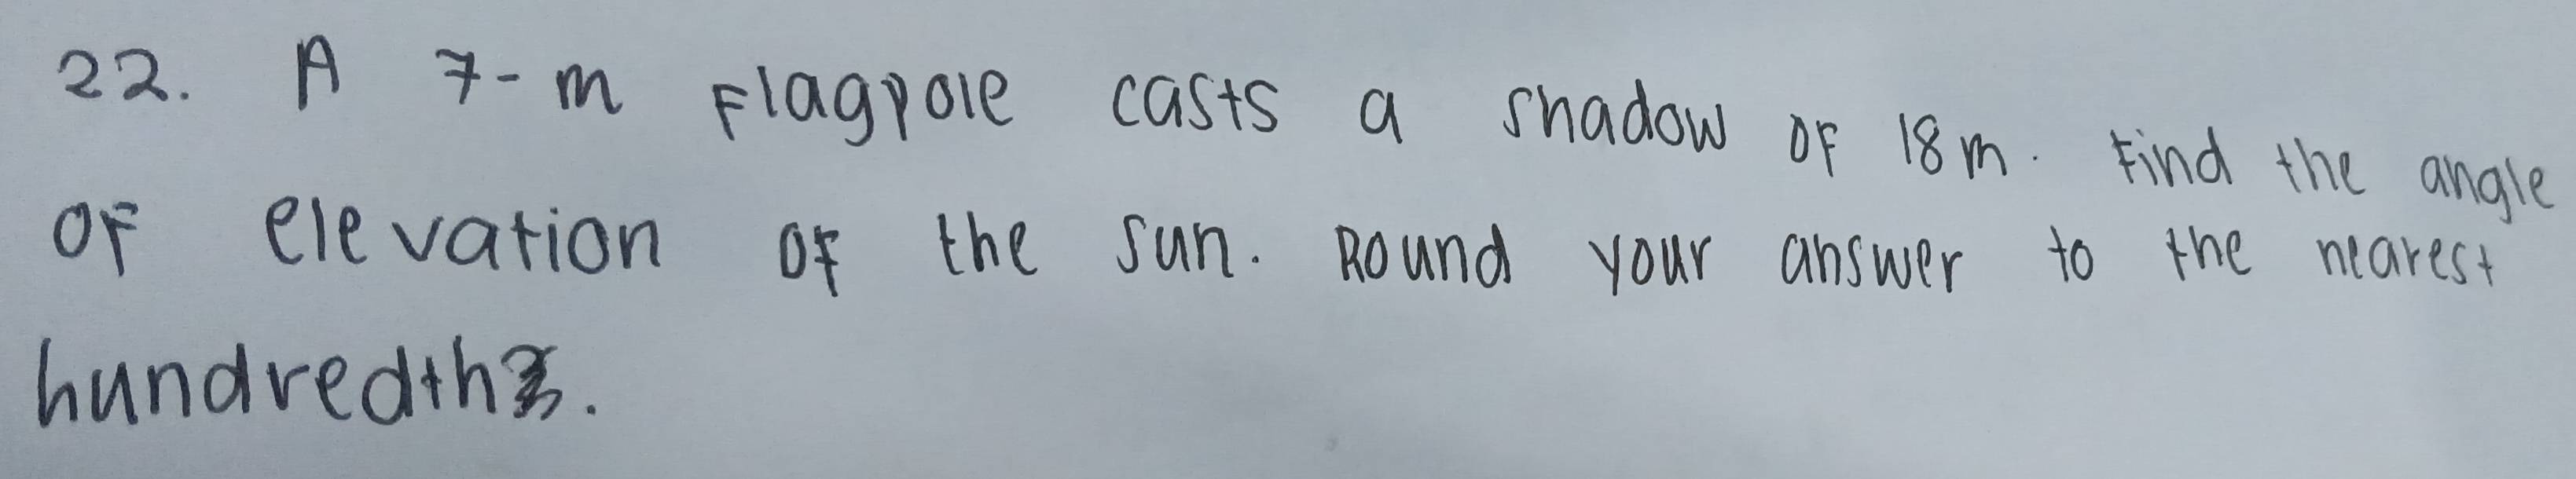 22. A 7-m Flagpole casts a shadow of 18m. Find the angle
of elevation of the sun. Round your answer to the nearest
hundredth.